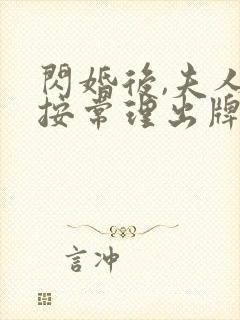 閃婚後,夫人
按常理出牌
言冲